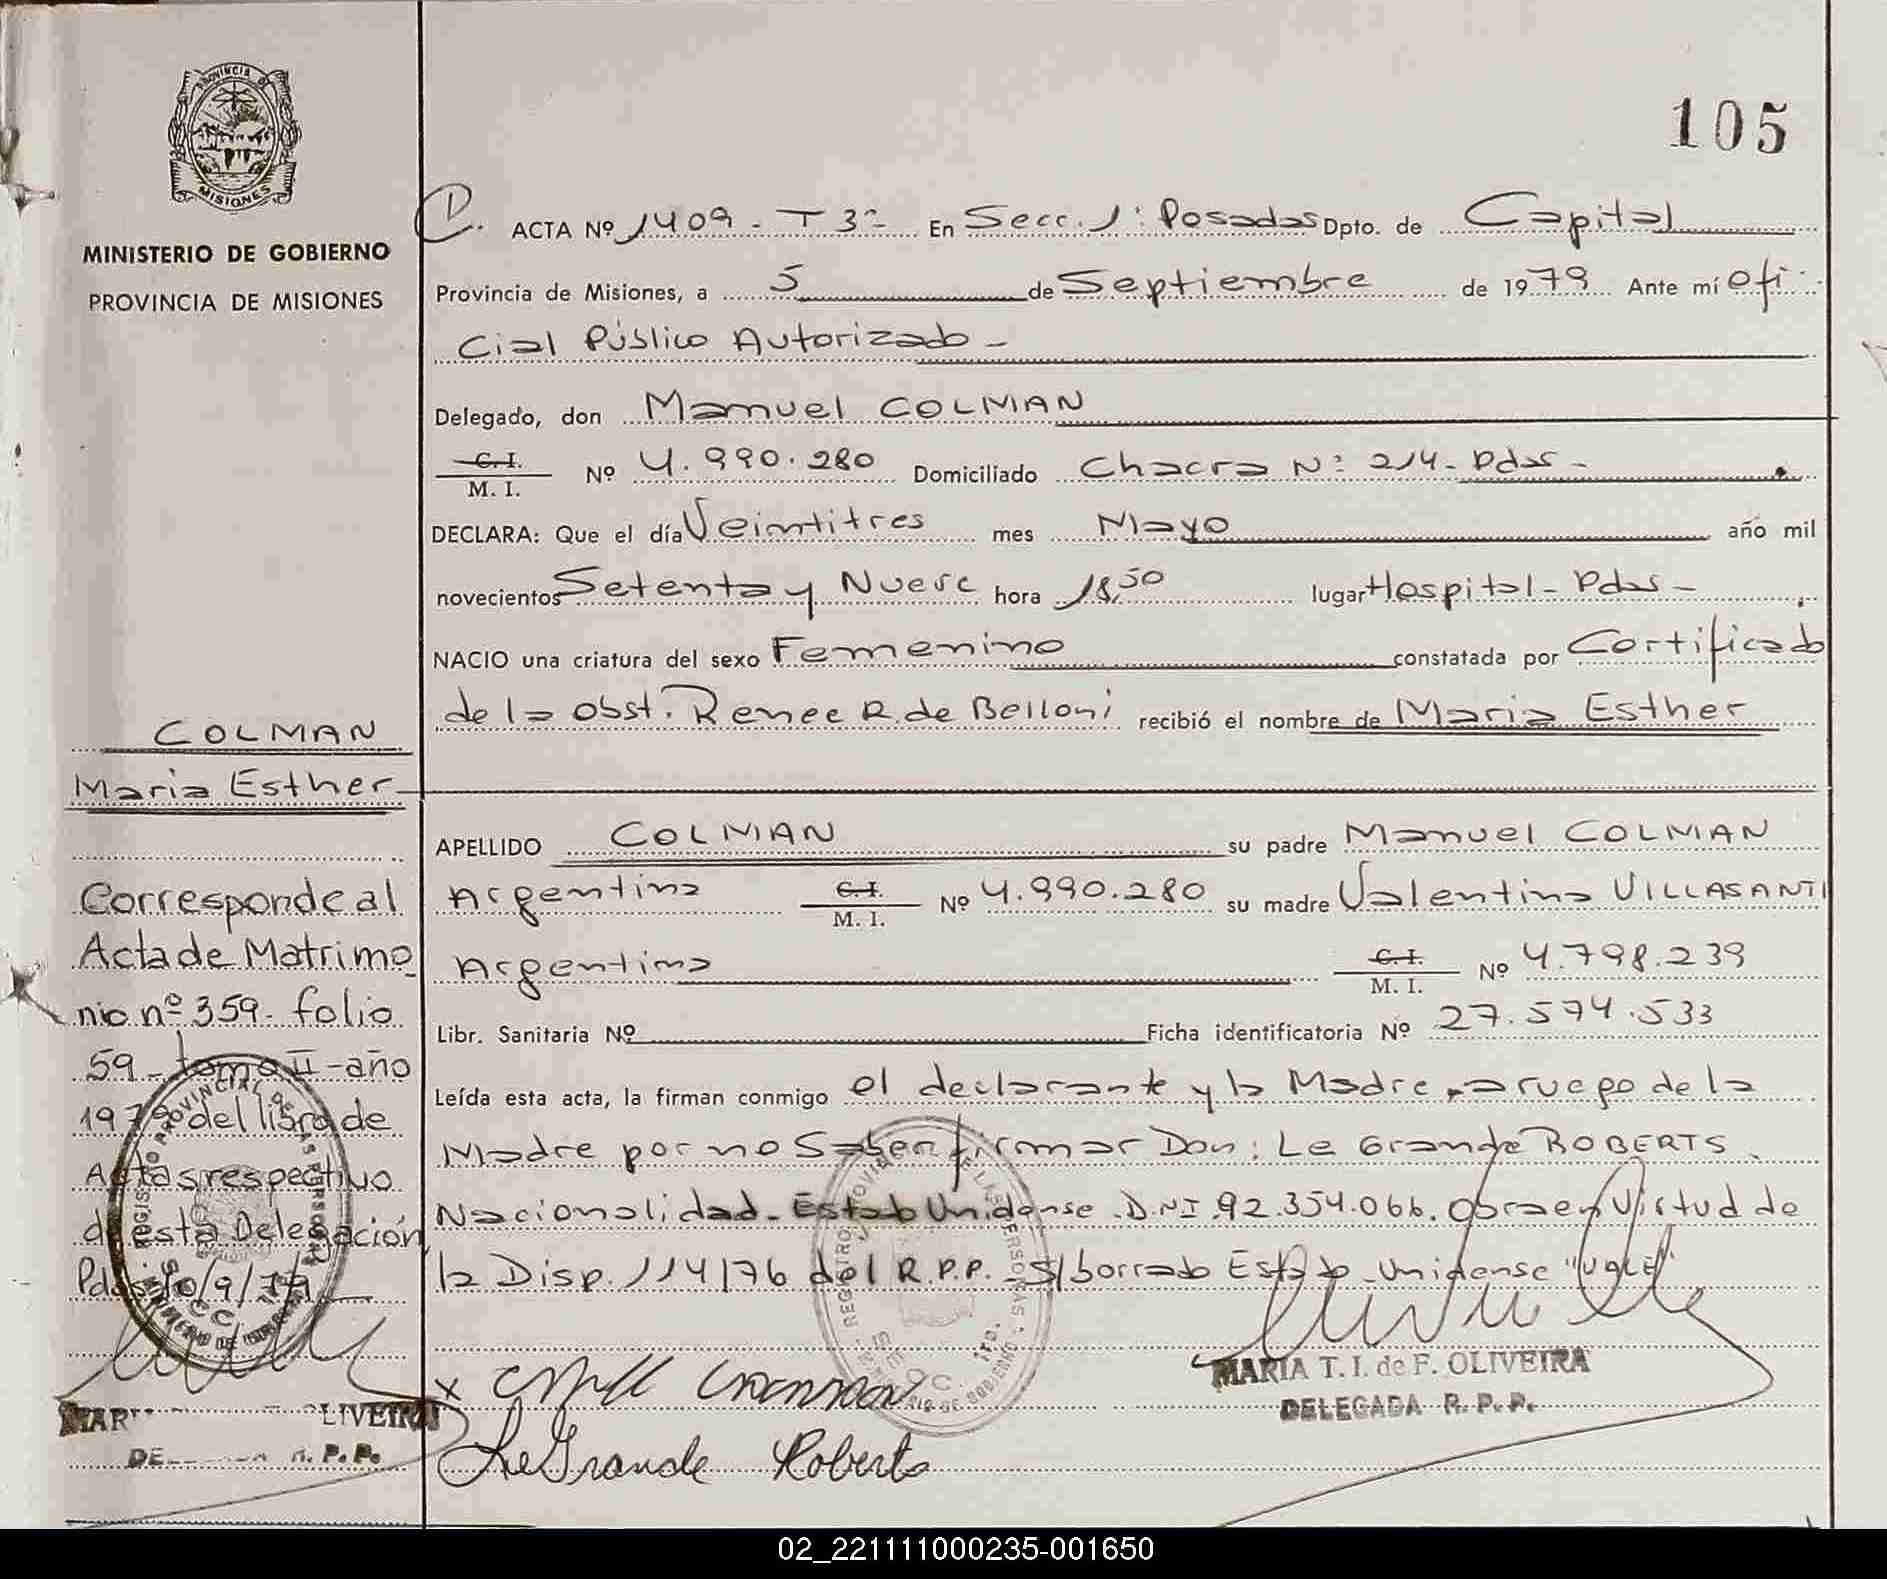 PROVINCIA DE
MISIONES
MINISTERIO DE GOBIERNO
PROVINCIA DE MISIONES
COLMAN
Maria Esther
Corresponde al
Acta de Matrimo
nio nº 359- folio
59- tomo II-año
1979 del libro de
Actas respectivo
de esta Delegación
Pdas 10/9/79
DE R. P. P.
105
ACTA Nº 1409- T 3º- En Secc. 1º Posadas Dpto. de Capital
Provincia de Misiones, a 5 de Septiembre de 1979 Ante mí ofi
cial Público Autorizado-
Delegado, don Manuel COLMAN
C. I.
M. I. Nº 4.990.280 Domiciliado Chacra Nº 214- Pdas-
DECLARA: Que el día Veintitres mes Mayo año mil
novecientos Setenta y Nueve hora 18,50 lugar Hospital- Pdas-
NACIO una criatura del sexo Femenino constatada por Certificado
de la obst. Renee R. de Belloni recibió el nombre de Maria Esther
APELLIDO COLMAN su padre Manuel COLMAN
Argentina C. I.
M. I. Nº 4.990.280 su madre Valentina VILLASANTI
Argentina C. I.
M. I. Nº 4.798.239
Libr. Sanitaria Nº Ficha identificatoria Nº 27.574.533
Leída esta acta, la firman conmigo el declarante y la Madre, a ruego de la
Madre por no Saber firmar Don: Le Grande ROBERTS
Nacionalidad- Estado Unidense D.N.I 92.354.066. Obra en Virtud de
la Disp. 114/76 del R.P.P.- S/borrado Estado- Unidense "VALE"
MARIA T. I. de F. OLIVEIRA
DELEGADA R. P. P.
x Colman
LeGrande Roberts
02_221111000235-001650